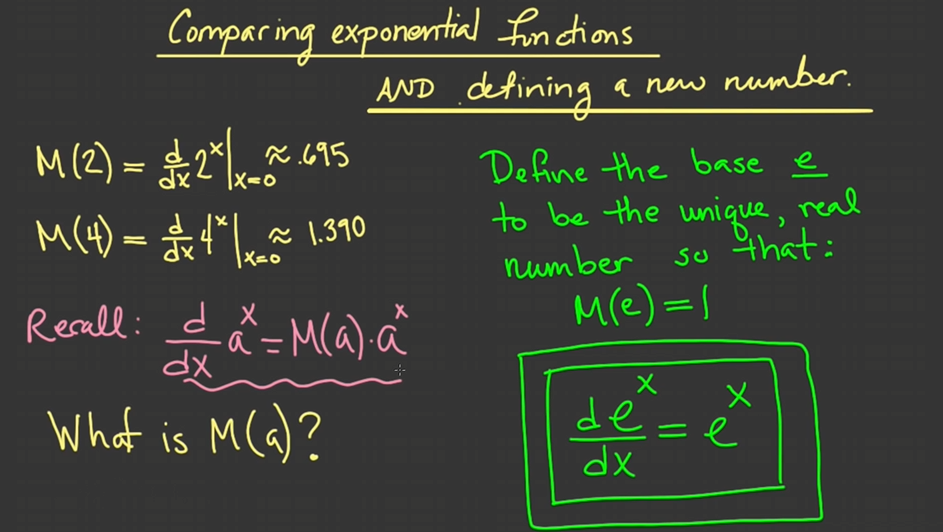 Comparing exponential functions
AND defining a new number.
M(2) = d/dx 2^x |x=0 ≈ .695
M(4) = d/dx 4^x |x=0 ≈ 1.390
Recall: d/dx a^x = M(a)·a^x
What is M(a)?
Define the base e
to be the unique, real
number so that:
M(e) = 1
de^x/dx = e^x